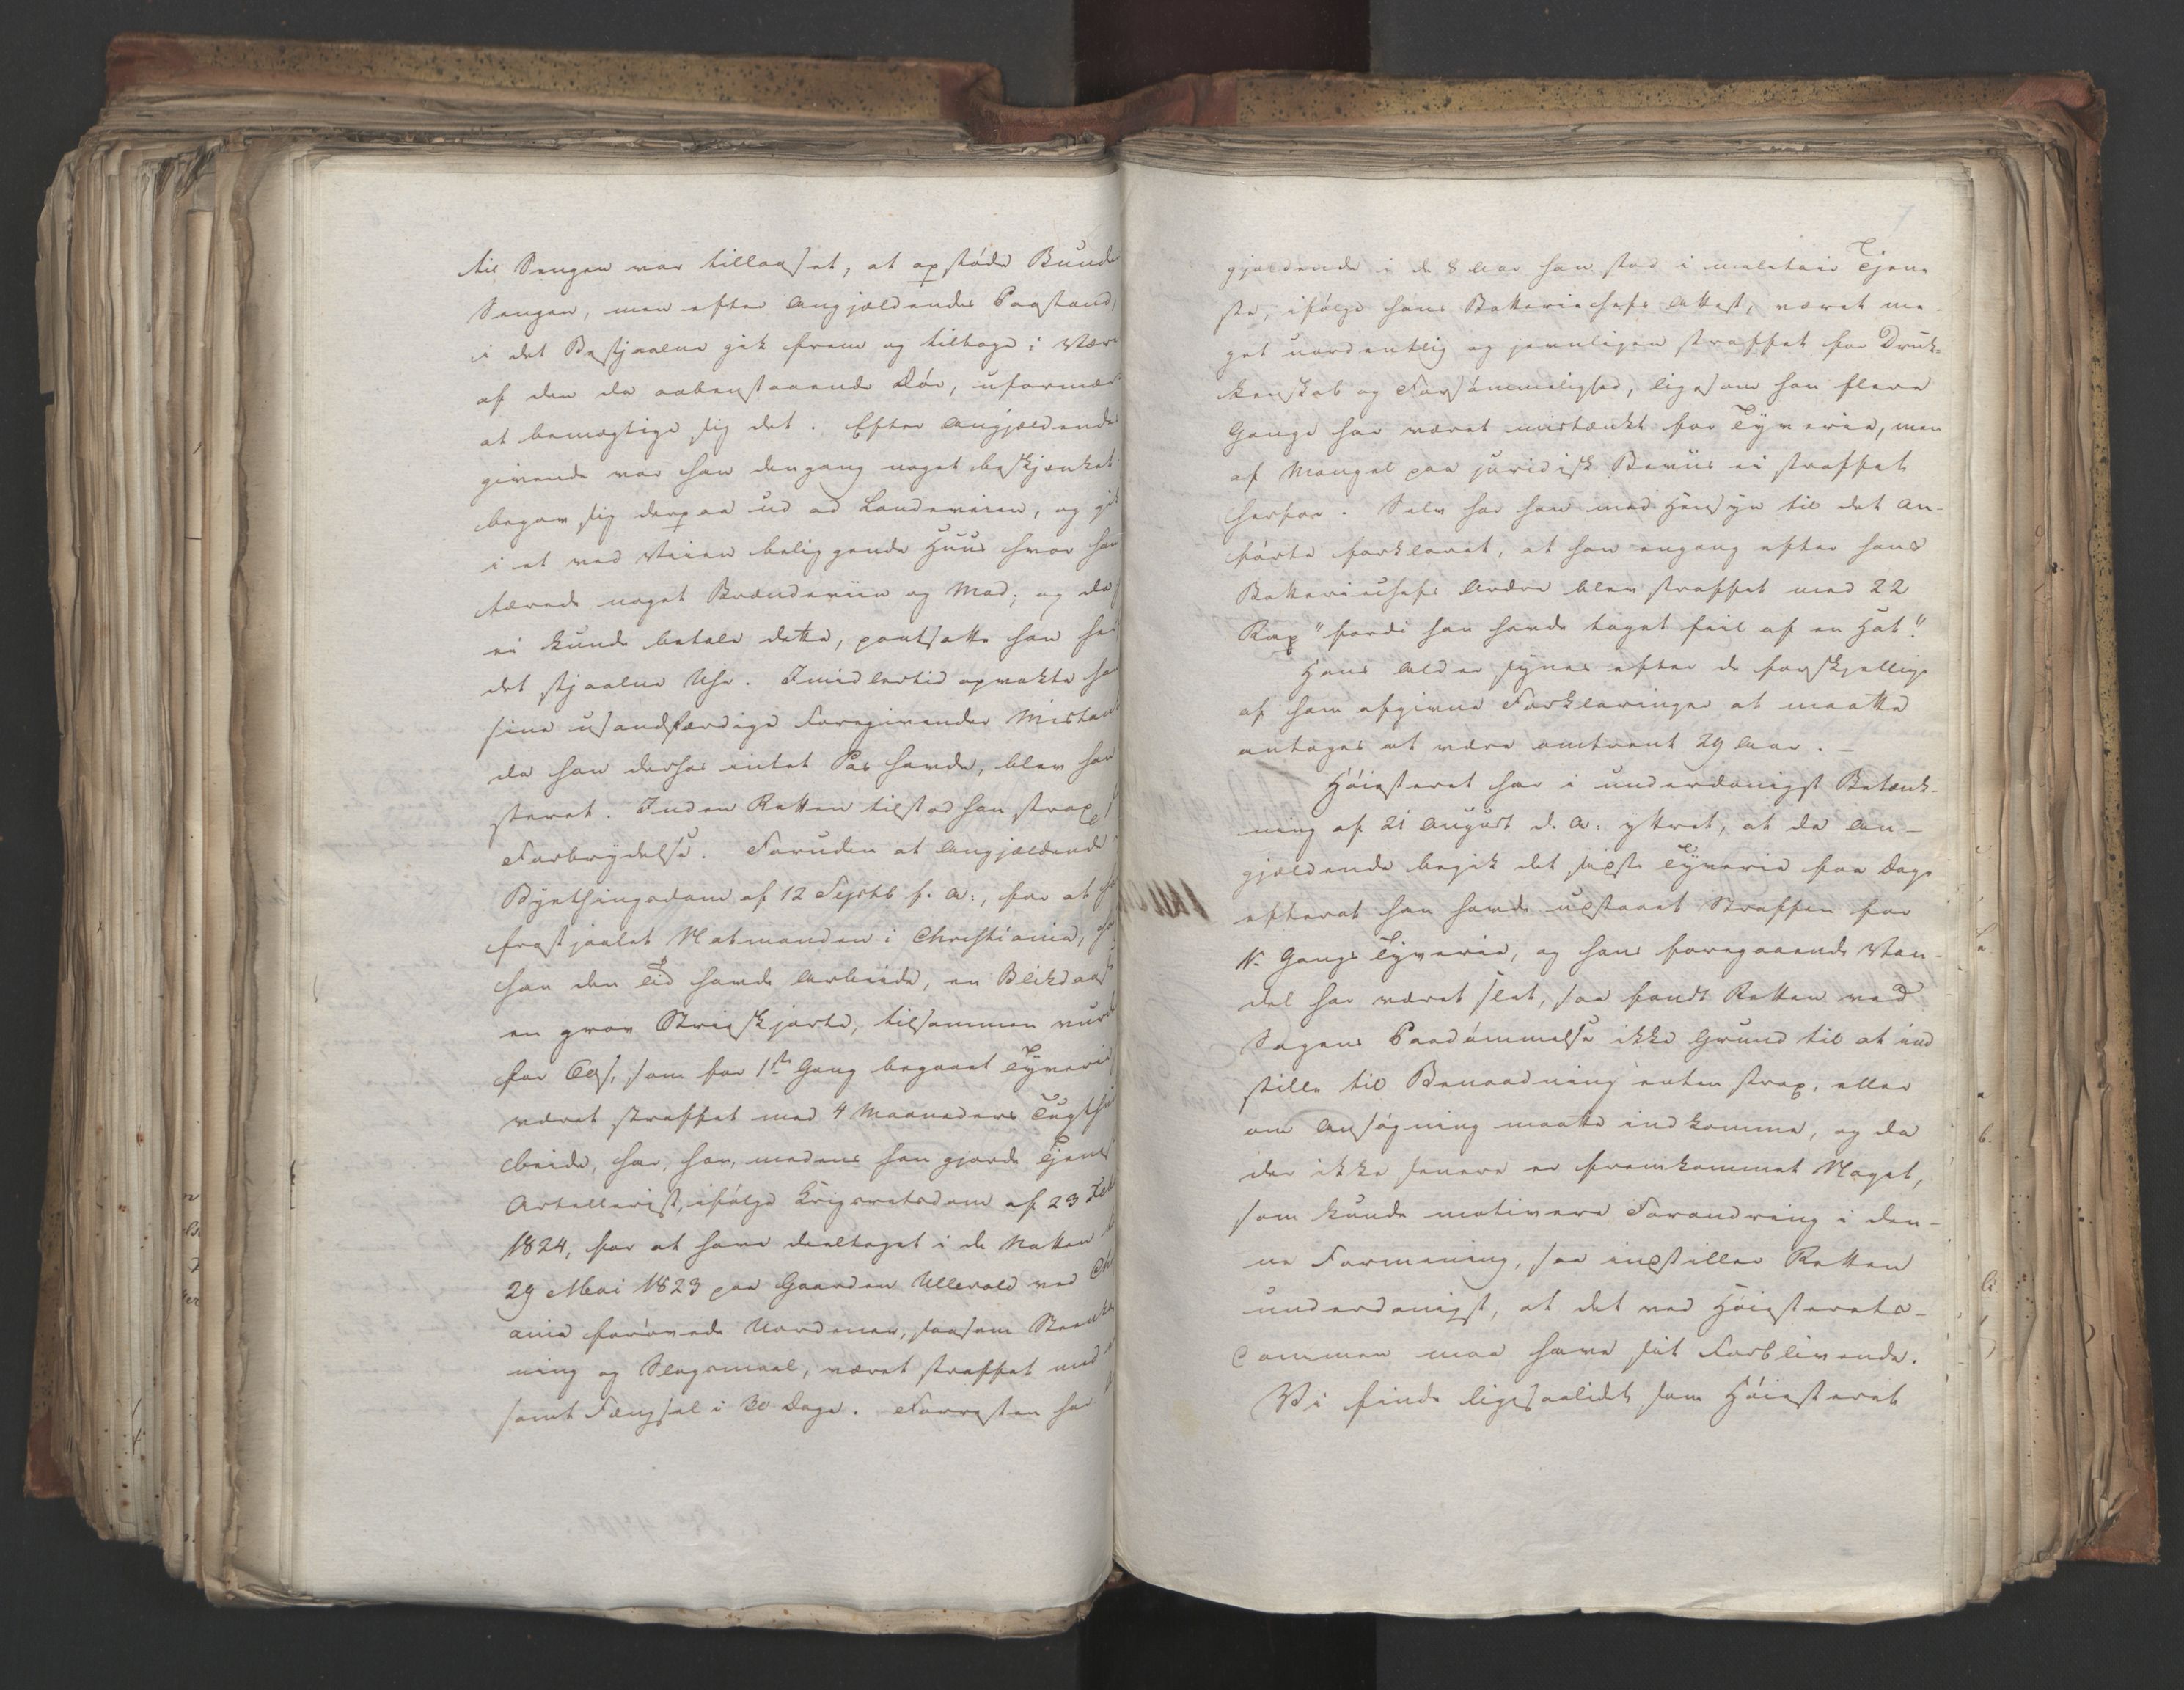 til Sengen var tillaaset, at opstøde Bunde
Sengen, men efter Angjældendes Paastand,
i det Bestjaalne gik frem og tilbage i Være
af den da aabenstaaende Dør, uformær
at bemægtige sig det. Efter Angjældende
givende var han dengang noget beskjænket
begav sig derpaa ud ad Landeveien, og gik
i et ved Veien beliggende Huus hvor han
tærede noget Brændeviin og Mad; og da
ei kunde betale dette, pantsatte han her
det stjaalne Uhr. Imidlertid opvakte han
sine usandfærdige Foregivender Mistank
da han derhos intet Pas havde, blev han
steret. Inden Retten tilstod han strax
Forbrydelse. Foruden at Angjældende
Byethingsdom af 12 Septb f. A:, for at h
frastjaalet Natmanden i Christiania, h
han den Tid havde Arbeide, en Blikdaas
en grov Strieskjorte, tilsammen vurd
for 60 s, som for 1ste Gang begaaet Tyverie
været straffet med 4 Maaneders Tugthu
beide, har han, medens han gjorde Tjenes
Artellerist, ifølge Krigsretsdom af 23 Feb
1824, for at have deeltaget i de Natten
29 Mai 1823 paa Gaarden Ullevold ved Ch
ania forøvede Uordener, saasom Steenka
ning og Slagsmaal, været straffet med
samt Fængsel i 30 Dage. Forresten har
gjældende i de 8 Aar han stod i militair Tjene
ste, ifølge hans Batteriechefs Attest, været me-
get uordentlig og jevnligen straffet for Druk-
kenskab og Forsømmelighed, ligesom han flere
Gange har været mistænkt for Tyverie, men
af Mangel paa juridisk Beviis ei straffet
herfor. Selv har han med Hensyn til det an-
førte forklaret, at han engang efter hans
Batteriechefs Ordre blev straffet med 22
Rap "fordi han havde taget feil af en Hat".
Hans Alder synes efter de forskjellige
af ham afgivne Forklaringer at maatte
antages at være omtrent 29 Aar. -
Høiesteret har i underdanigst Betænk-
ning af 21 August d. A: yttret, at da An-
gjældende begik det sidste Tyverie faa Dage
efterat han havde udstaaet Straffen for
1ste Gangs Tyverie, og hans foregaaende Van-
del har været slet, saa fandt Retten ved
Sagens Paadømmelse ikke Grund til at ind
stille til Benaadning enten strax, eller
om Ansøgning maatte indkomme, og da
der ikke senere er fremkommet Noget,
som kunde motivere Forandring i den-
ne Formening, saa indstiller Retten
underdanigst, at det ved Høiesterets-
Dommen maa have sit Forblivende.
Vi finde ligesaalidt som Høiesteret